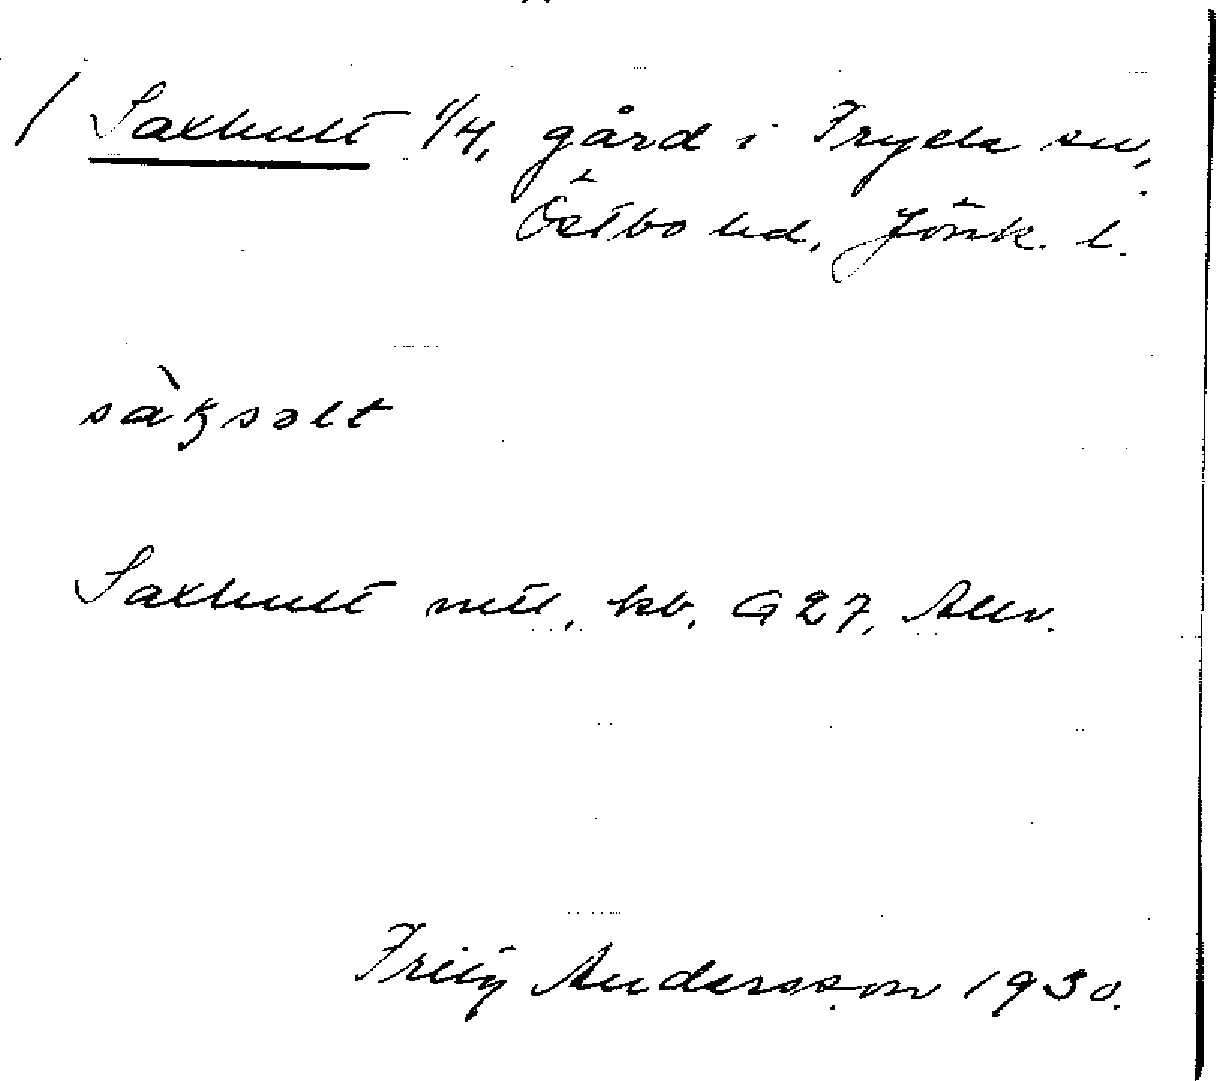 / Saxhult 1/4, gård i Fryele sn,
Östbo hd, Jönk. l.
sàksəlt
Saxhult mtl, kb. G27, Allv.
Fritz Andersson 1930.